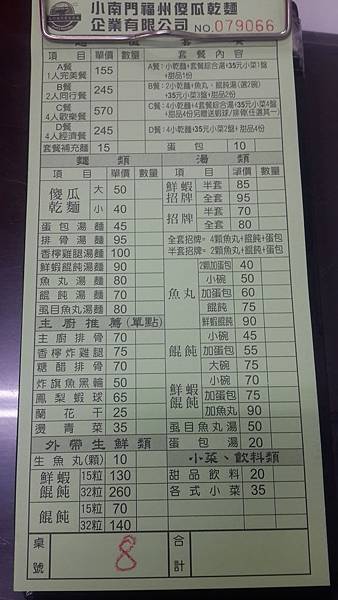 小南門福州傻瓜乾麵
企業有限公司 NO.079066
項目 單價 數量 套餐內容
A餐 1人完美餐 155 A餐：小乾麵+套餐綜合湯+35元小菜1盤+甜品1份
B餐 2人同行餐 245 B餐：2小乾麵+魚丸、餛飩湯(選2碗)+35元小菜3盤+甜品2份
C餐 4人歡樂餐 570
D餐 4人經濟餐 245 D餐：4小乾麵+35元小菜2盤+甜品4份
套餐補充麵 15 蛋包 10
麵類
項目 單價 數量
傻瓜乾麵 大 50
小 40
蛋包湯麵 45
排骨湯麵 95
香檸雞腿湯麵 100
鮮蝦餛飩湯麵 90
魚丸湯麵 80
餛飩湯麵 70
虱目魚丸湯麵 80
主廚推薦(單點)
主廚排骨 70
香檸炸雞腿 75
糖醋排骨 70
炸旗魚黑輪 50
鳳梨蝦球 65
蘭花干 25
燙青菜 35
外帶生鮮類
生魚丸(顆) 10
鮮蝦餛飩 15粒 130
32粒 260
餛飩 15粒 70
32粒 140
湯類
項目 單價 數量
鮮蝦招牌 半套 85
全套 95
招牌 半套 70
全套 80
全套招牌=4顆魚丸+餛飩+蛋包
半套招牌=2顆魚丸+餛飩+蛋包
魚丸 2顆加蛋包 40
小碗 50
加蛋包 60
加餛飩 75
鮮蝦餛飩 90
餛飩 小碗 45
加蛋包 55
大碗 75
鮮蝦餛飩 小碗 70
加蛋包 75
加魚丸 90
虱目魚丸湯 50
蛋包湯 20
小菜、飲料類
甜品飲料 20
各式小菜 35
桌號 8 合計